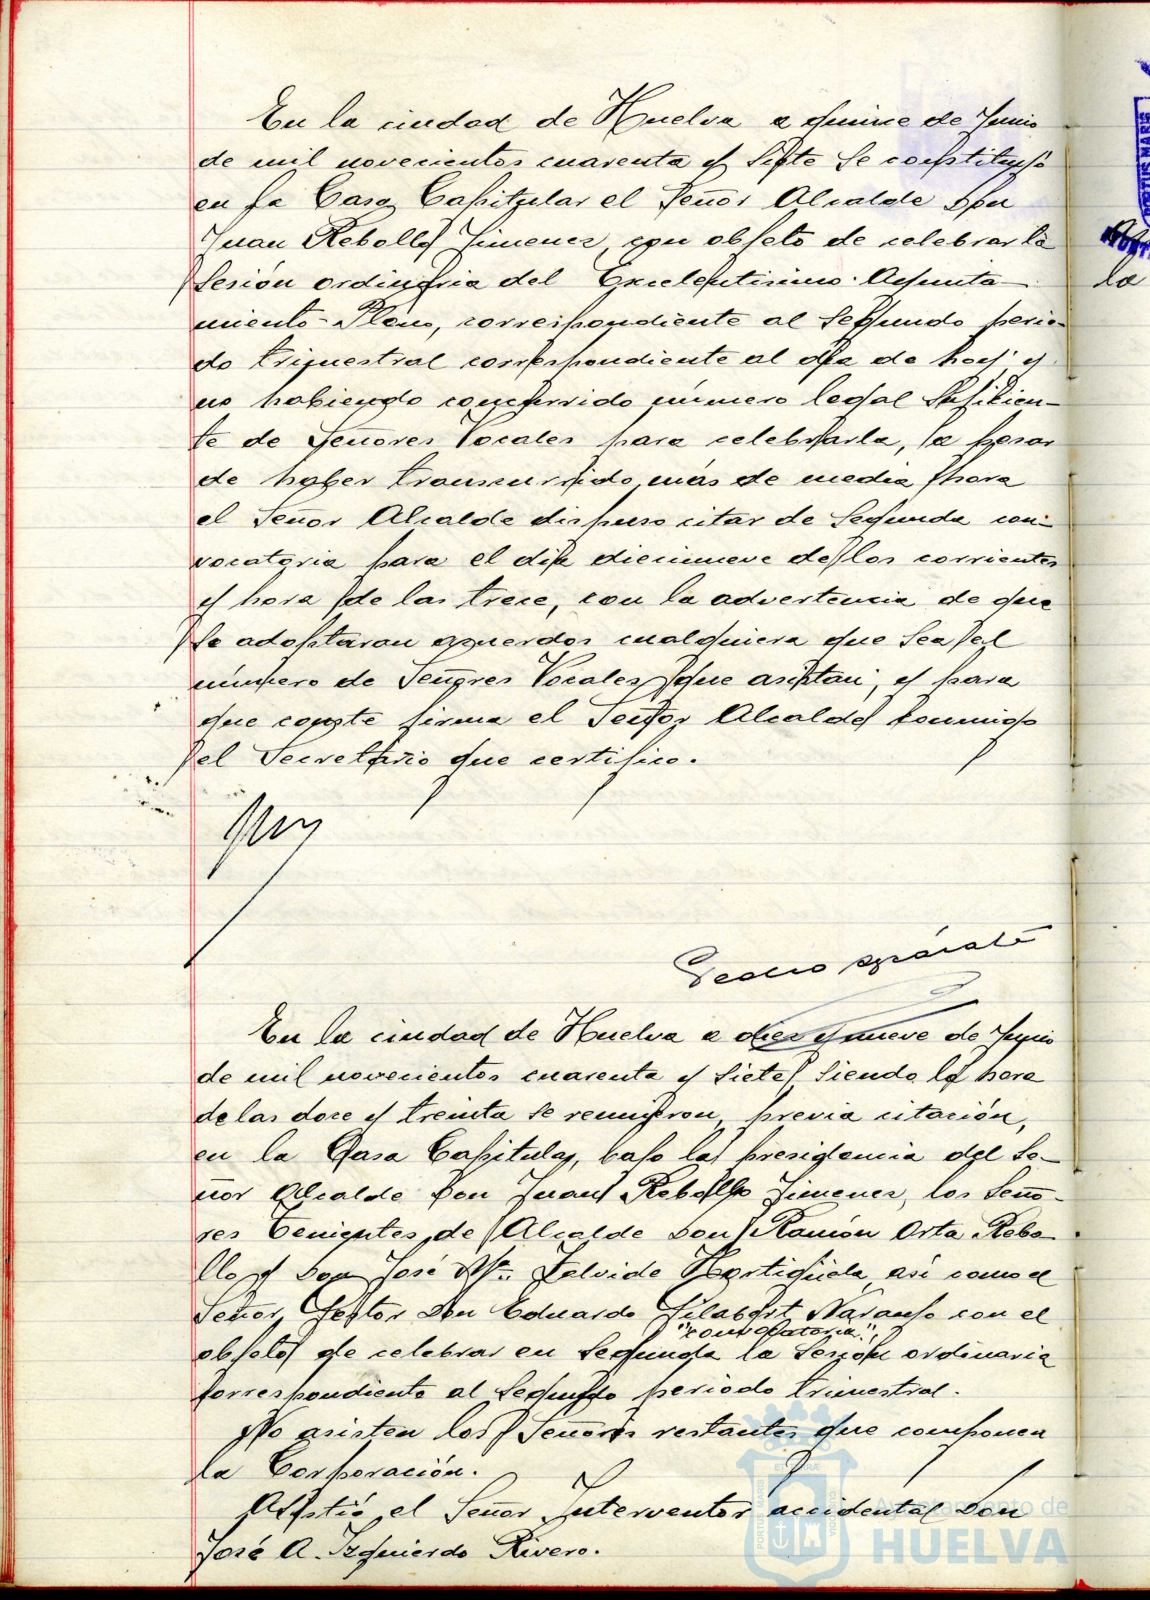 En la ciudad de Huelva a quince de Junio
de mil novecientos cuarenta y siete se constituyó
en la Casa Capitular el Señor Alcalde Don
Juan Rebollo Jimenez, con objeto de celebrar la
Sesión ordinaria del Excelentisimo Ayunta-
miento-Pleno, correspondiente al Segundo perio-
do trimestral correspondiente al día de hoy; y
no habiendo concurrido número legal suficien-
te de Señores Vocales para celebrarla, a pesar
de haber transcurrido más de media hora
el Señor Alcalde dispuso citar de Segunda con-
vocatoria para el día diecinueve de los corrientes
y hora de las trece, con la advertencia de que
se adoptaran acuerdos cualquiera que sea el
número de Señores Vocales que asistan; y para
que conste firma el Señor Alcalde conmigo
el Secretario que certifico.
En la ciudad de Huelva a diez y nueve de Junio
de mil novecientos cuarenta y siete, siendo la hora
de las doce y treinta se reunieron, previa citación,
en la Casa Capitular, bajo la presidencia del Se-
ñor Alcalde Don Juan Rebollo Jimenez, los Seño-
res Tenientes de Alcalde Don Ramón Orta Rebo-
llo y Don José Mª. Hortigüela, así como el
Señor Gestor Don Eduardo Gilabert Naranjo con el
"convocatoria",
objeto de celebrar en Segunda la Sesión ordinaria
correspondiente al Segundo periodo trimestral.
No asisten los Señores restantes que componen
la Corporación.
Asistió el Señor Interventor accidental Don
José A. Izquierdo Rivero.
la
PORTUS MARIS
Ayuntamiento de
HUELVA